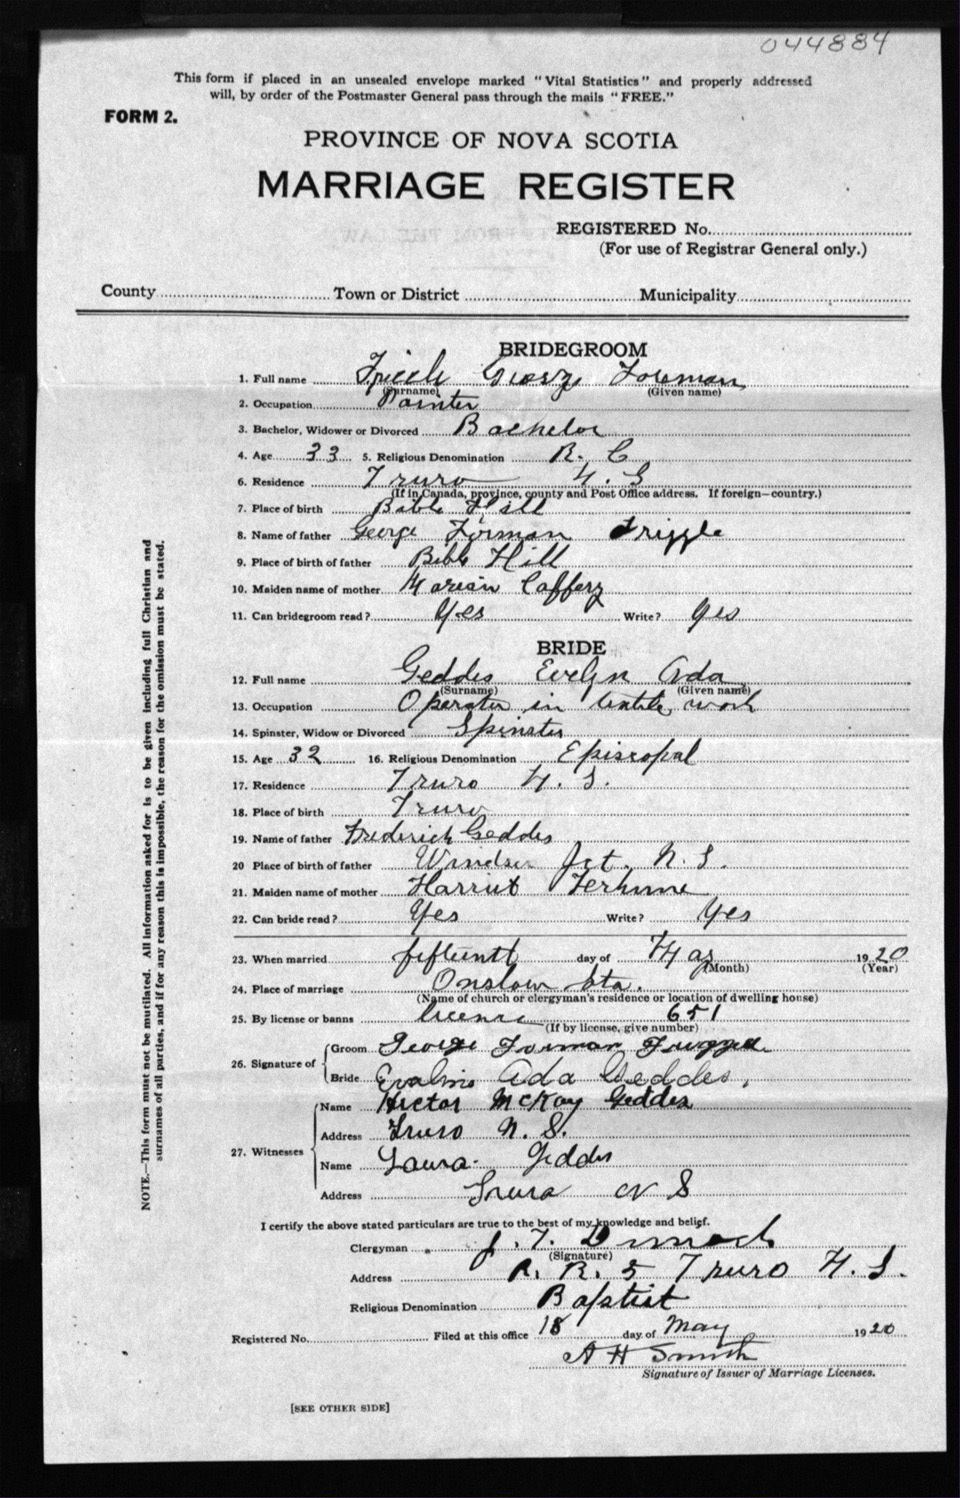 044884
This form if placed in an unsealed envelope marked "Vital Statistics" and properly addressed
will, by order of the Postmaster General pass through the mails "FREE."
FORM 2.
PROVINCE OF NOVA SCOTIA
MARRIAGE REGISTER
REGISTERED No.
(For use of Registrar General only.)
County Town or District Municipality
BRIDEGROOM
1. Full name George Forman
(Surname) (Given name)
2. Occupation Painter
3. Bachelor, Widower or Divorced Bachelor
4. Age 33 5. Religious Denomination R. C
6. Residence Truro N. S
(If in Canada, province, county and Post Office address. If foreign—country.)
7. Place of birth Bible Hill
8. Name of father George Forman Friggle
9. Place of birth of father Bible Hill
10. Maiden name of mother Marian Caffery
11. Can bridegroom read? Yes Write? Yes
BRIDE
12. Full name Geddes Evelyn Ada
(Surname) (Given name)
13. Occupation Operator in textile work
14. Spinster, Widow or Divorced Spinster
15. Age 32 16. Religious Denomination Episcopal
17. Residence Truro N. S.
18. Place of birth Truro
19. Name of father Frederick Geddes
20 Place of birth of father Windsor Jct. N. S.
21. Maiden name of mother Harriet Terhune
22. Can bride read? Yes Write? Yes
23. When married fifteenth day of May 1920
(Month) (Year)
24. Place of marriage Onslow Sta.
(Name of church or clergyman's residence or location of dwelling house)
25. By license or banns license 651
(If by license, give number)
26. Signature of Groom George Forman
Bride Ada Geddes.
27. Witnesses Name Hector McKay Geddes
Address Truro N. S.
Name Laura Geddes
Address Truro N S
I certify the above stated particulars are true to the best of my knowledge and belief.
Clergyman J. T. Dimock
(Signature)
Address R. R. 5 Truro N. S.
Religious Denomination Baptist
Registered No. Filed at this office 18 day of May 1920
A H Smith
Signature of Issuer of Marriage Licenses.
[SEE OTHER SIDE]
NOTE.—This form must not be mutilated. All information asked for is to be given including full Christian and
surnames of all parties, and if for any reason this is impossible, the reason for the omission must be stated.